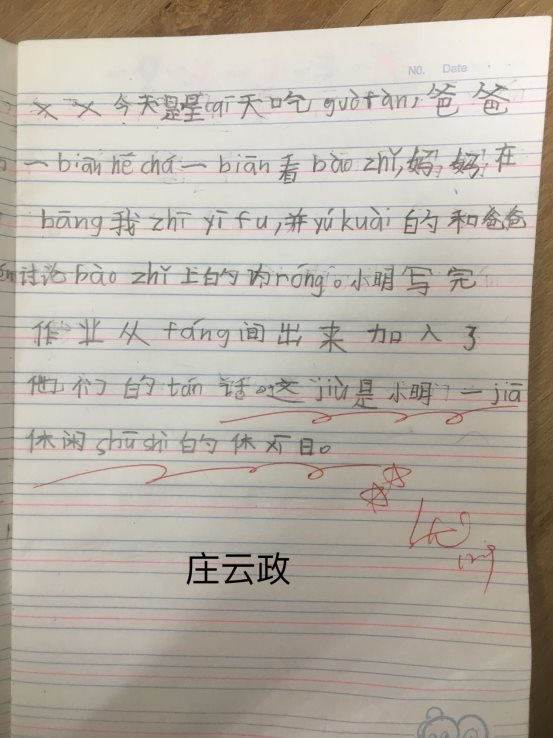 NO. Date
今天是星qī天吃guò fàn,爸爸
一biān hē chá一biān看bào zhǐ,妈妈在
bāng我zhī yī fu,并yú kuài的和爸爸
讨论bào zhǐ上的内róng。小明写完
作业从fáng间出来加入了
他们的tán话。这jiù是小明一jiā
休闲shū shì的休息日。
庄云政